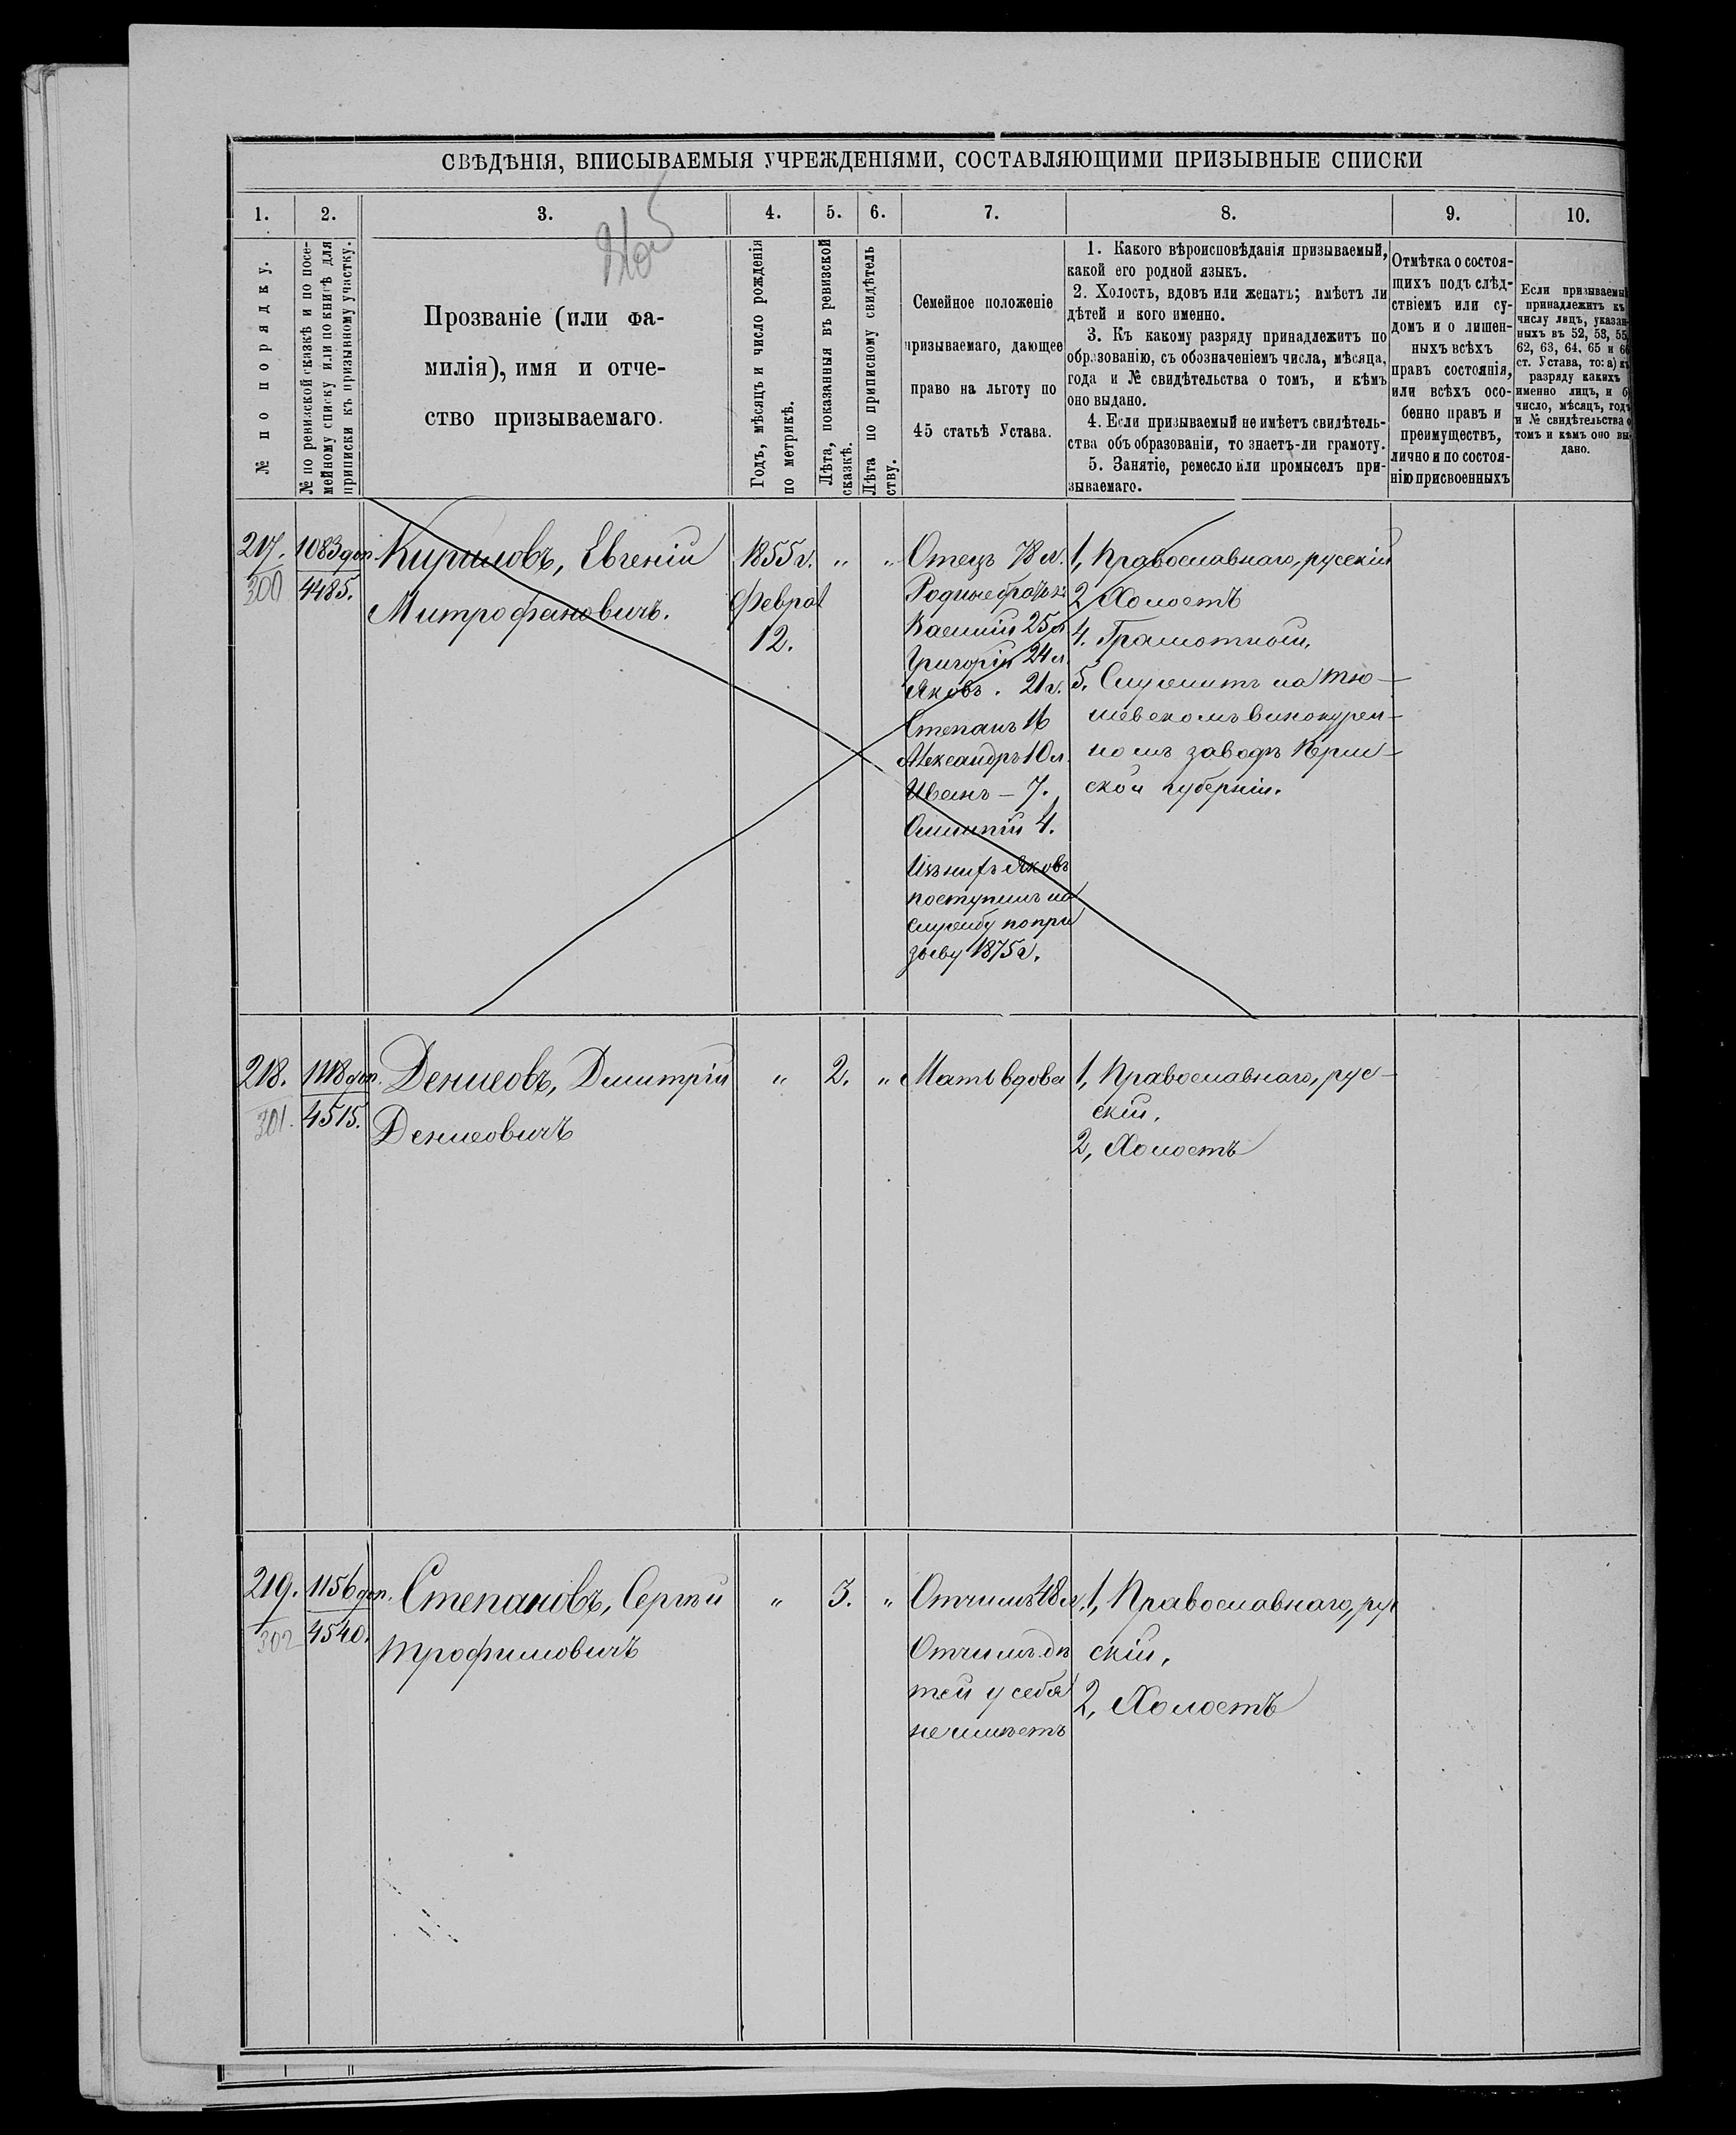 СВѢДѢНІЯ, ВПИСЫВАЕМЫЯ УЧРЕЖДЕНІЯМИ, СОСТАВЛЯЮЩИМИ ПРИЗЫВНЫЕ СПИСКИ
1.
2.
3.
4.
5.
6.
7.
8.
9.
10.
№ по порядку.
№ по ревизской сказкѣ и по посе-
мейному списку или по книгѣ для
приписки къ призывному участку.
Прозваніе (или фа-
милія), имя и отче-
ство призываемаго.
Годъ, мѣсяцъ и число рожденія
по метрикѣ.
Лѣта, показанныя въ ревизской
сказкѣ.
Лѣта по приписному свидѣтель
ству.
Семейное положеніе
призываемаго, дающее
право на льготу по
45 статьѣ Устава.
1. Какого вѣроисповѣданія призываемый,
какой его родной языкъ.
2. Холостъ, вдовъ или женатъ; имѣетъ ли
дѣтей и кого именно.
3. Къ какому разряду принадлежитъ по
образованію, съ обозначеніемъ числа, мѣсяца,
года и № свидѣтельства о томъ, и кѣмъ
оно выдано.
4. Если призываемый не имѣетъ свидѣтель-
ства объ образованіи, то знаетъ-ли грамоту.
5. Занятіе, ремесло или промыселъ при-
зываемаго.
Отмѣтка о состоя-
щихъ подъ слѣд-
ствіемъ или су-
домъ и о лишен-
ныхъ всѣхъ
правъ состоянія,
или всѣхъ осо-
бенно правъ и
преимуществъ,
лично и по состоя-
нію присвоенныхъ
Если призываемый
принадлежитъ къ
числу лицъ, указан-
ныхъ въ 52, 53, 55,
62, 63, 64, 65 и 66
ст. Устава, то: а) къ
разряду какихъ
именно лицъ, и б)
число, мѣсяцъ, годъ
и № свидѣтельства о
томъ и кѣмъ оно вы-
дано.
217.
300
1083 доп.
4485.
Кириловъ, Евгеній
Митрофановичъ.
1855 г.
Феврал
12.
"
"
Отецъ 78 л.
Родные братья:
Василій 25 л.
Григорій 24 л.
Яковъ. 21 г.
Степанъ 16
Александръ 10 л.
Иванъ – 7.
4.
Изъ нихъ Яковъ
поступилъ на
службу по при
зыву 1875 г.
1, Православнаго, русскій
2, Холостъ
4. Грамотной.
5. Служитъ на
винокурен-
номъ заводѣ Перм-
ской губерніи.
218.
301.
1118 доп.
4515.
Денисовъ, Димитрій
Денисовичъ
"
2.
"
Мать вдова
1, Православнаго, рус-
скій.
2, Холостъ
219.
302
1156 доп.
4540.
Степановъ, Сергѣй
Трофимовичъ
"
3.
"
Отчимъ 48 л.
Отчимъ дѣ
тей у себя
не имѣетъ
1, Православнаго, рус
скій.
2, Холостъ